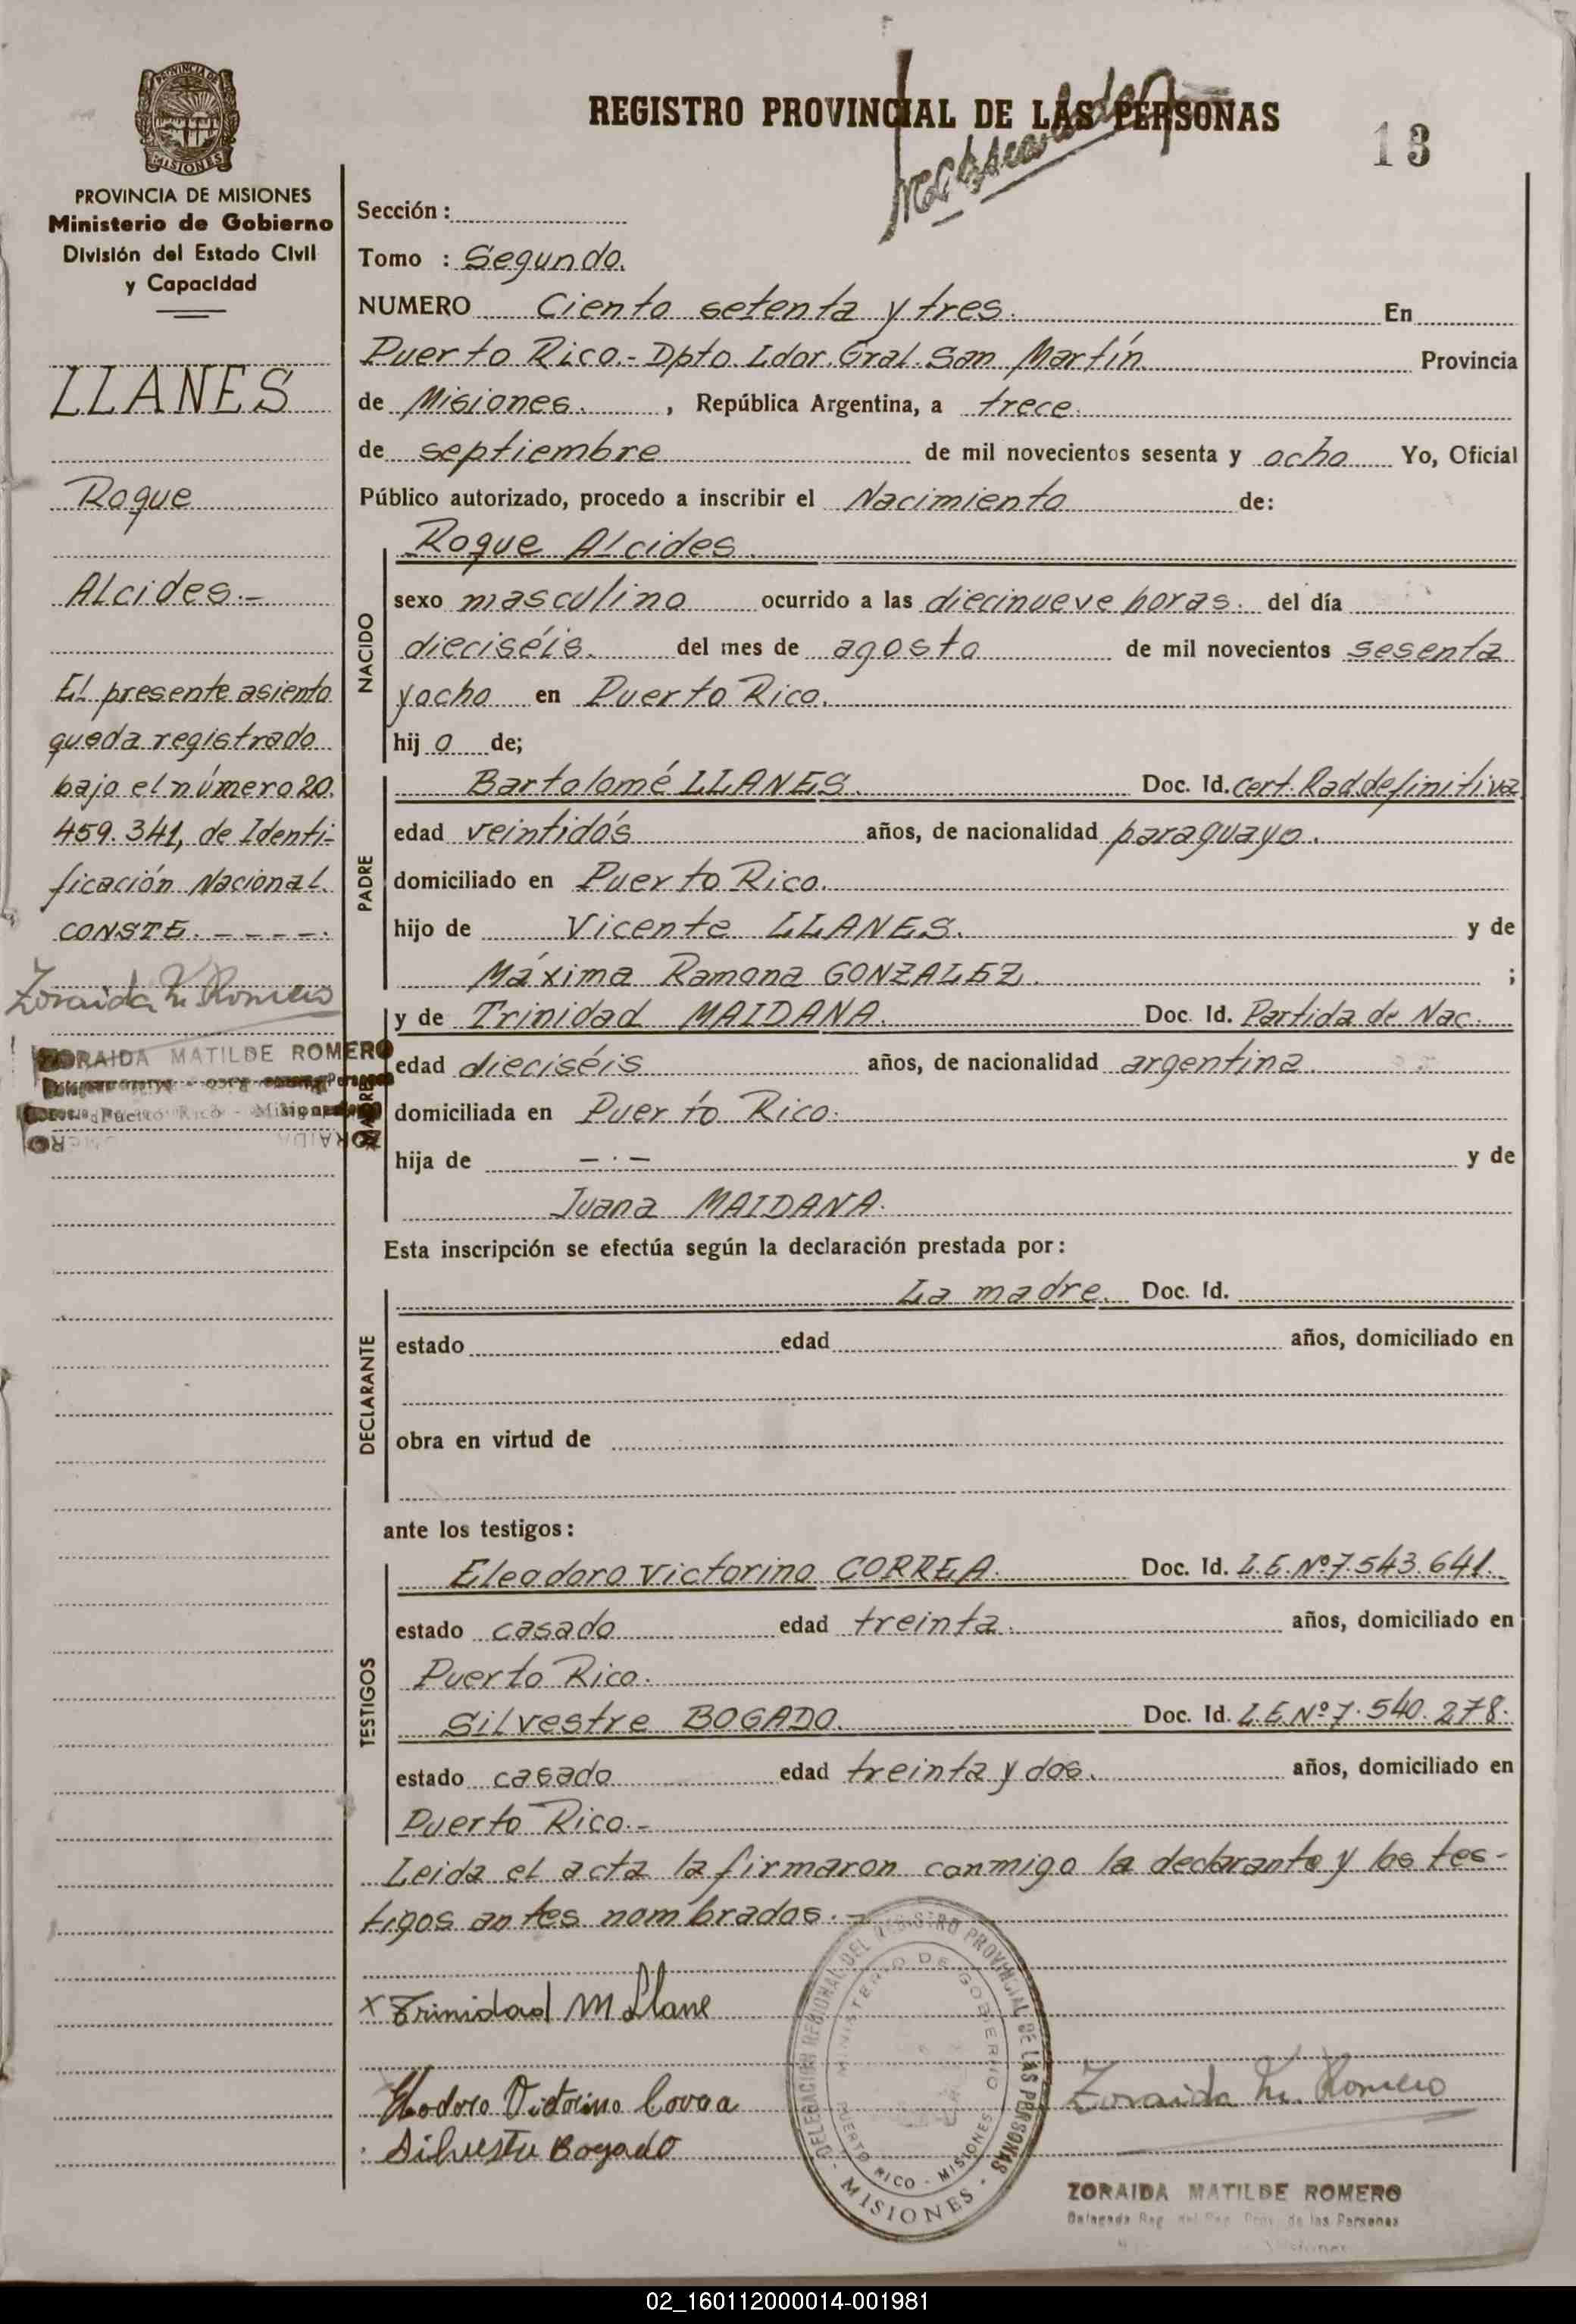 REGISTRO PROVINCIAL DE LAS PERSONAS
13
PROVINCIA DE MISIONES
PROVINCIA DE MISIONES
Ministerio de Gobierno
División del Estado Civil
y Capacidad
LLANES
Roque
Alcides.-
El presente asiento
queda registrado
bajo el número 20.
459.341, de Identi-
ficación Nacional.
CONSTE. - - - - -.
Zoraida M. Romero
ZORAIDA MATILDE ROMERO
Puerto Rico - Misiones
Sección :
Tomo : Segundo.
NUMERO Ciento setenta y tres. En
Puerto Rico.- Dpto. Ldor. Gral. San Martín. Provincia
de Misiones. , República Argentina, a trece.
de septiembre de mil novecientos sesenta y ocho Yo, Oficial
Público autorizado, procedo a inscribir el Nacimiento de:
NACIDO
Roque Alcides.
sexo masculino ocurrido a las diecinueve horas. del día
dieciséis. del mes de agosto de mil novecientos sesenta
y ocho en Puerto Rico.
hij o de;
PADRE
Bartolomé LLANES. Doc. Id. cert. Rad definitiva
edad veintidós años, de nacionalidad paraguayo.
domiciliado en Puerto Rico.
hijo de Vicente LLANES. y de
Máxima Ramona GONZALEZ. ;
MADRE
y de Trinidad MAIDANA. Doc. Id. Partida de Nac.
edad dieciséis años, de nacionalidad argentina.
domiciliada en Puerto Rico.
hija de -.- y de
Juana MAIDANA.
Esta inscripción se efectúa según la declaración prestada por:
DECLARANTE
La madre. Doc. Id.
estado edad años, domiciliado en
obra en virtud de
ante los testigos:
TESTIGOS
Eleodoro Victorino CORREA. Doc. Id. L.E. Nº 7.543.641.
estado casado edad treinta. años, domiciliado en
Puerto Rico.
Silvestre BOGADO. Doc. Id. L.E. Nº 7.540.278.
estado casado edad treinta y dos. años, domiciliado en
Puerto Rico.-
Leida el acta la firmaron conmigo la declarante y los tes-
tigos antes nombrados.-
x Trinidad M Llane
Eleodoro Victorino Correa
Silvestre Bogado
DELEGACION REGIONAL DEL REGISTRO PROVINCIAL DE LAS PERSONAS
- MISIONES -
MINISTERIO DE GOBIERNO
PUERTO RICO - MISIONES
Zoraida M. Romero
ZORAIDA MATILDE ROMERO
Delegada Reg. del Reg. Prov. de las Personas
02_160112000014-001981